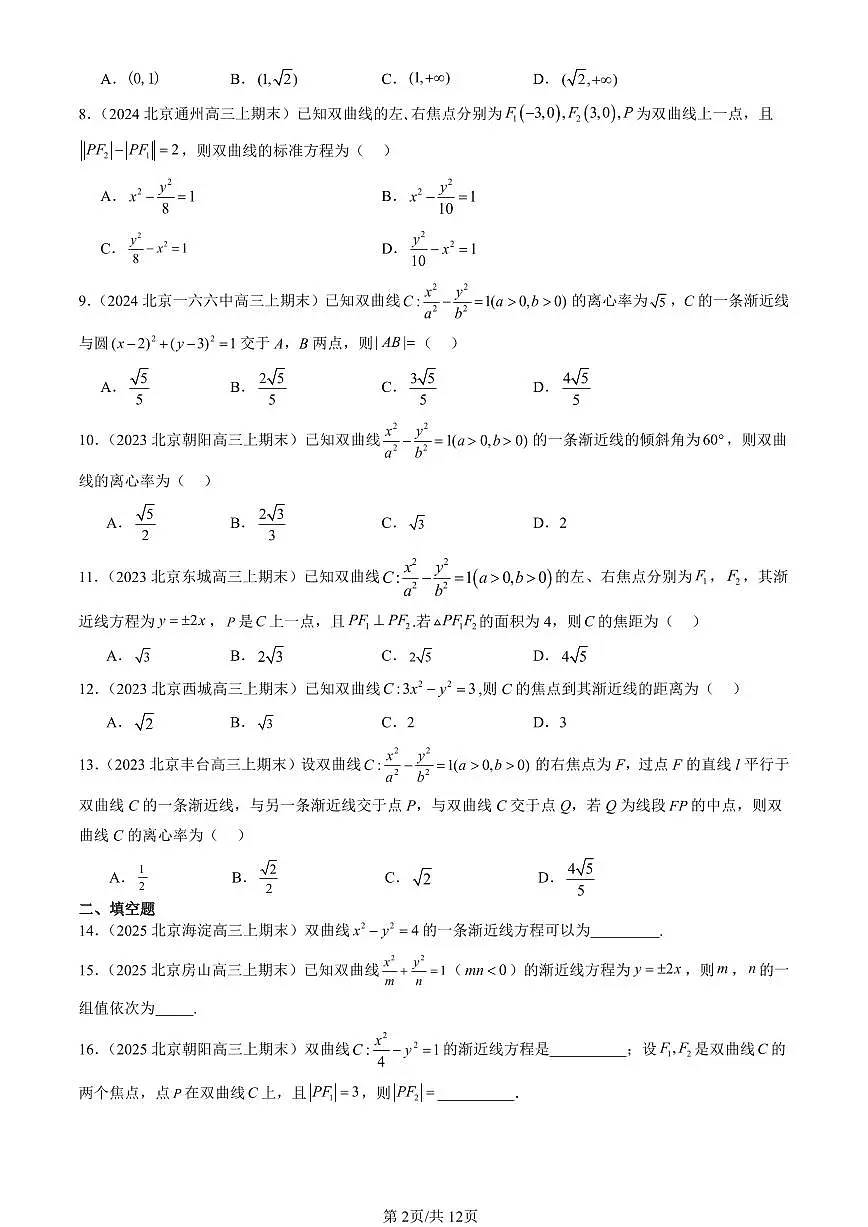 A．(0,1)  B．(1,√2)  C．(1,+∞)  D．(√2,+∞)
8.（2024 北京通州高三上期末）已知双曲线的左、右焦点分别为 F₁(−3,0), F₂(3,0), P 为双曲线上一点，且
||PF₂|−|PF₁||=2，则双曲线的标准方程为（  ）
A．x²−y²/8=1  B．x²−y²/10=1
C．y²/8−x²=1  D．y²/10−x²=1
9.（2024 北京一六六中高三上期末）已知双曲线 C: x²/a²−y²/b²=1(a>0,b>0) 的离心率为√5，C 的一条渐近线
与圆 (x−2)²+(y−3)²=1 交于 A，B 两点，则|AB|=（  ）
A．√5/5  B．2√5/5  C．3√5/5  D．4√5/5
10.（2023 北京朝阳高三上期末）已知双曲线 x²/a²−y²/b²=1(a>0,b>0) 的一条渐近线的倾斜角为60°，则双曲
线的离心率为（  ）
A．√5/2  B．2√3/3  C．√3  D．2
11.（2023 北京东城高三上期末）已知双曲线 C: x²/a²−y²/b²=1(a>0,b>0) 的左、右焦点分别为 F₁，F₂，其渐
近线方程为 y=±2x，P 是 C 上一点，且 PF₁⊥PF₂.若△PF₁F₂的面积为 4，则 C 的焦距为（  ）
A．√3  B．2√3  C．2√5  D．4√5
12.（2023 北京西城高三上期末）已知双曲线 C:3x²−y²=3,则 C 的焦点到其渐近线的距离为（  ）
A．√2  B．√3  C．2  D．3
13.（2023 北京丰台高三上期末）设双曲线 C: x²/a²−y²/b²=1(a>0,b>0) 的右焦点为 F，过点 F 的直线 l 平行于
双曲线 C 的一条渐近线，与另一条渐近线交于点 P，与双曲线 C 交于点 Q，若 Q 为线段 FP 的中点，则双
曲线 C 的离心率为（  ）
A．1/2  B．√2/2  C．√2  D．4√5/5
二、填空题
14.（2025 北京海淀高三上期末）双曲线 x²−y²=4 的一条渐近线方程可以为_________.
15.（2025 北京房山高三上期末）已知双曲线 x²/m+y²/n=1（mn<0）的渐近线方程为 y=±2x，则 m，n 的一
组值依次为_____.
16.（2025 北京朝阳高三上期末）双曲线 C: x²/4−y²=1 的渐近线方程是__________；设 F₁,F₂ 是双曲线 C 的
两个焦点，点 P 在双曲线 C 上，且|PF₁|=3，则|PF₂|=__________．
第 2页/共 12页